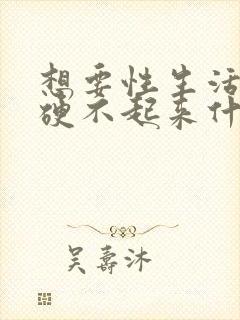 想要性生活
硬不起来什
吴寿沐